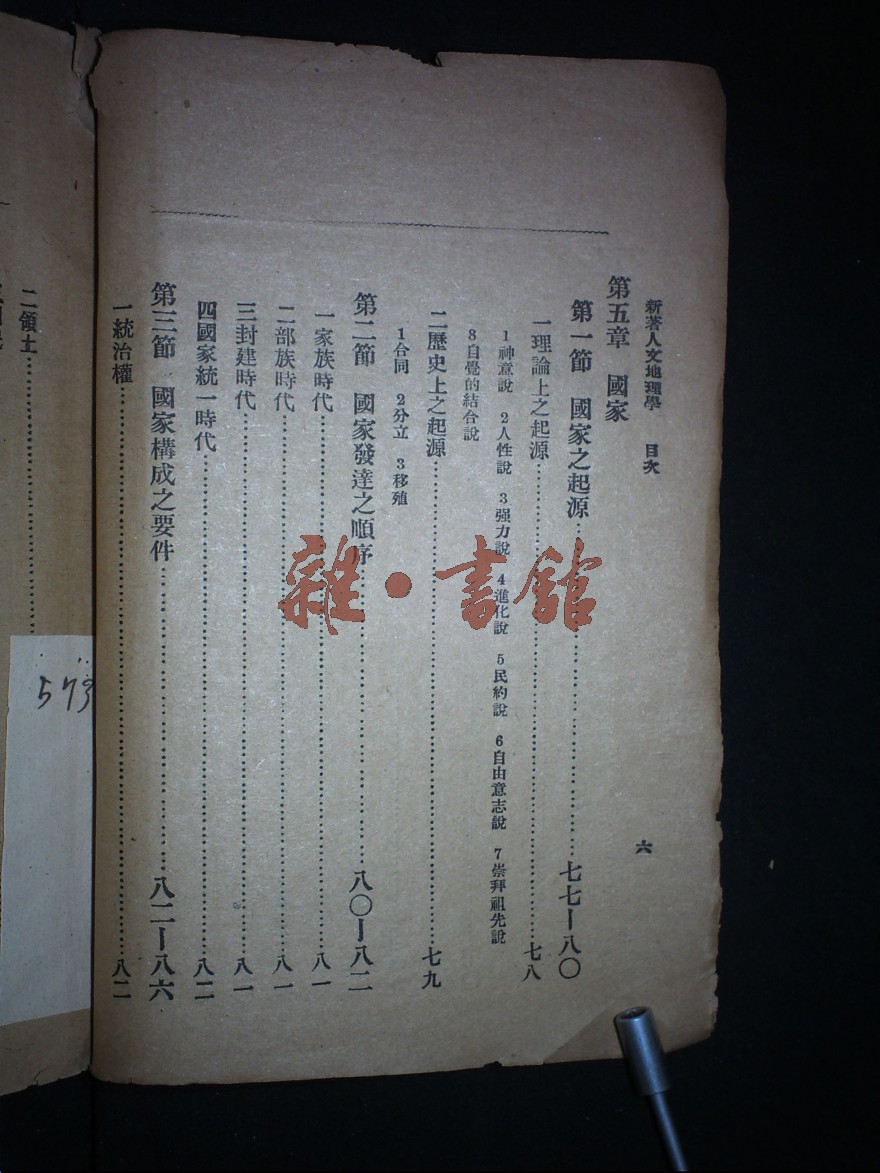 新著人文地理學　目次　六
第五章　國家
第一節　國家之起源……七七—八〇
一理論上之起源……七八
1神意說　2人性說　3强力說　4進化說　5民約說　6自由意志說　7崇拜祖先說
8自覺的結合說
二歷史上之起源……七九
1合同　2分立　3移殖
第二節　國家發達之順序……八〇—八二
一家族時代……八一
二部族時代……八一
三封建時代……八一
四國家統一時代……八二
第三節　國家構成之要件……八二—八六
一統治權……八二
二領土……
573
雜·書館